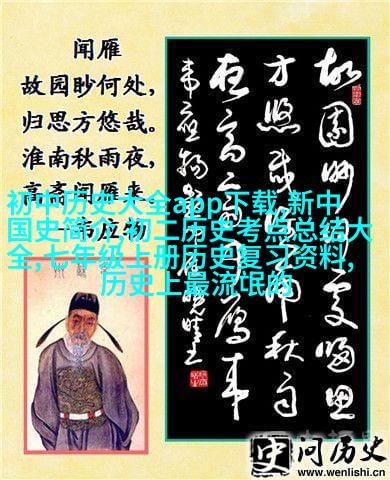 闻雁
故园眇何处，
归思方悠哉。
淮南秋雨夜，
高斋闻雁来。
韦应物
初中历史大全app下载,新中
国史简介,初二历史考点总结大
全,七年级上册历史复习资料,
历史上最流氓的
故园眇何处归思
方悠哉淮南秋雨
夜高斋闻雁来
韦应物
史问历史
www.wenlishi.com